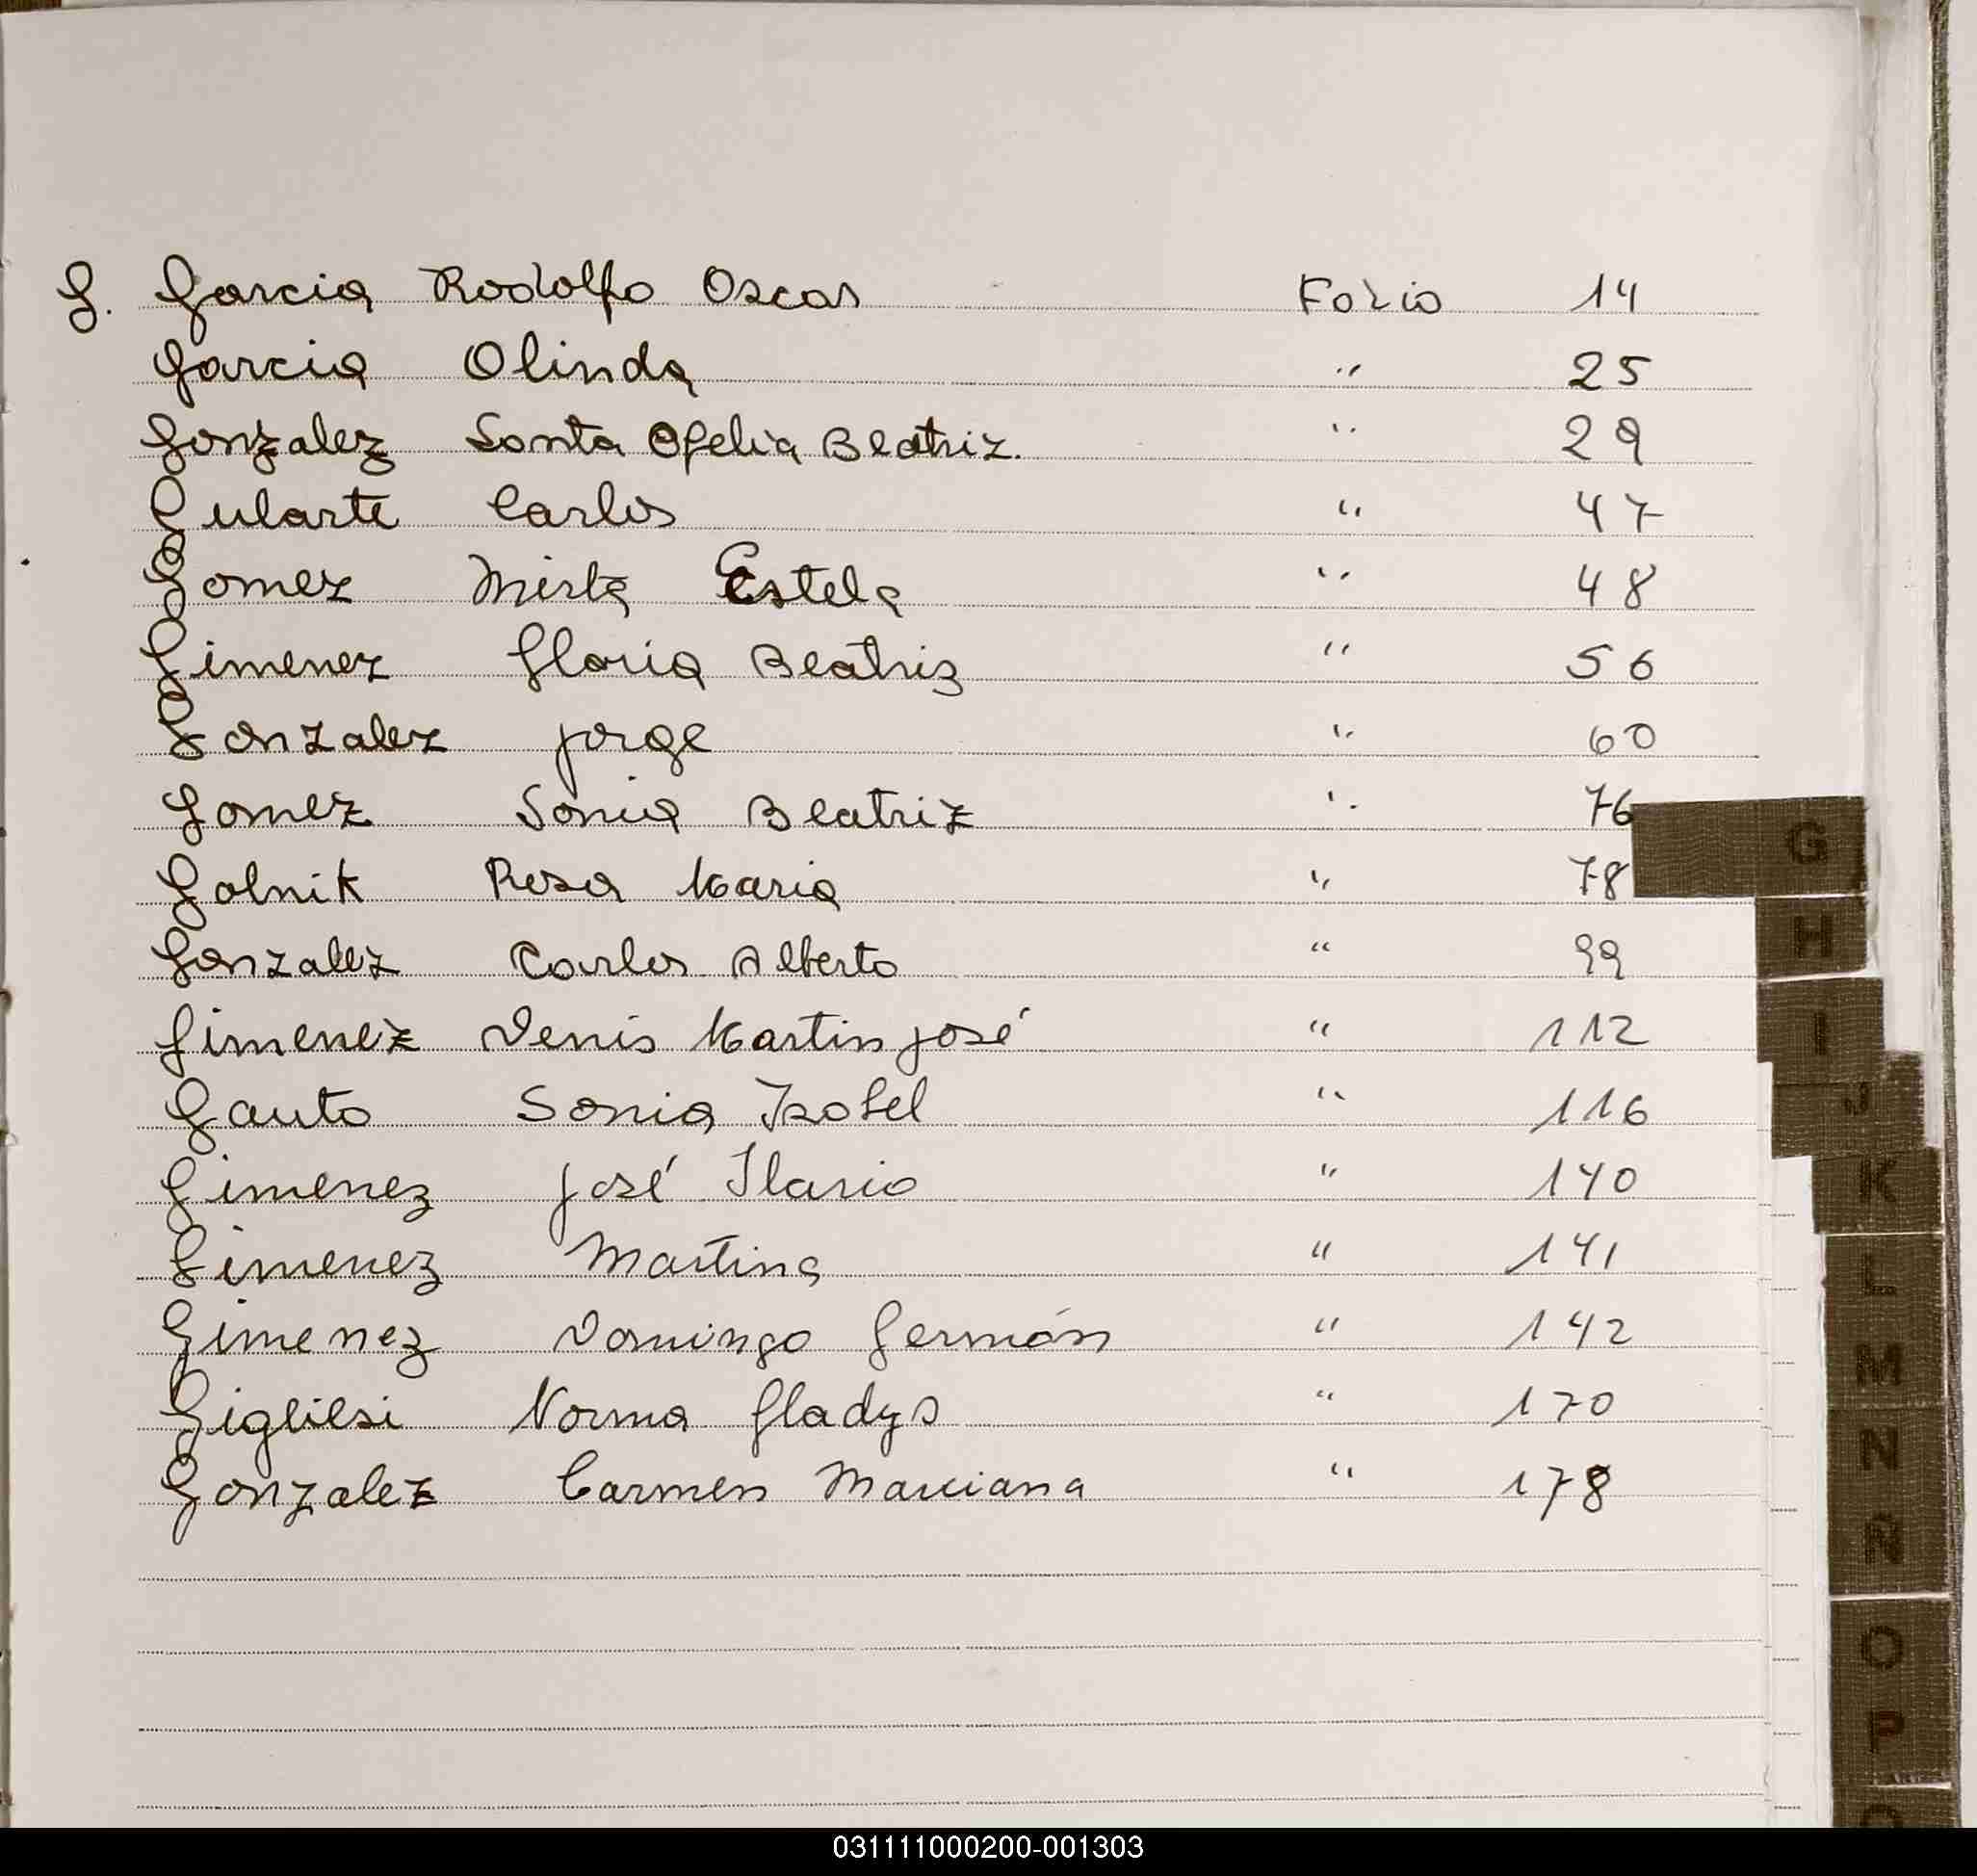 G. Garcia Rodolfo Oscar Folio 14
Garcia Olinda " 25
Gonzalez Santa Ofelia Beatriz. " 29
Gularte Carlos " 47
Gomez Mirta Estela " 48
Gimenez Gloria Beatriz " 56
Gonzalez Jorge " 60
Gomez Sonia Beatriz " 76
Golnik Rosa Maria " 78
Gonzalez Carlos Alberto " 99
Gimenez Denis Martin José " 112
Gauto Sonia Isabel " 116
Gimenez José Ilario " 140
Gimenez Martina " 141
Gimenez Domingo Germán " 142
Norma Gladys " 170
Gonzalez Carmen Marciana " 178
G
H
I
J
K
L
M
N
Ñ
O
P
031111000200-001303